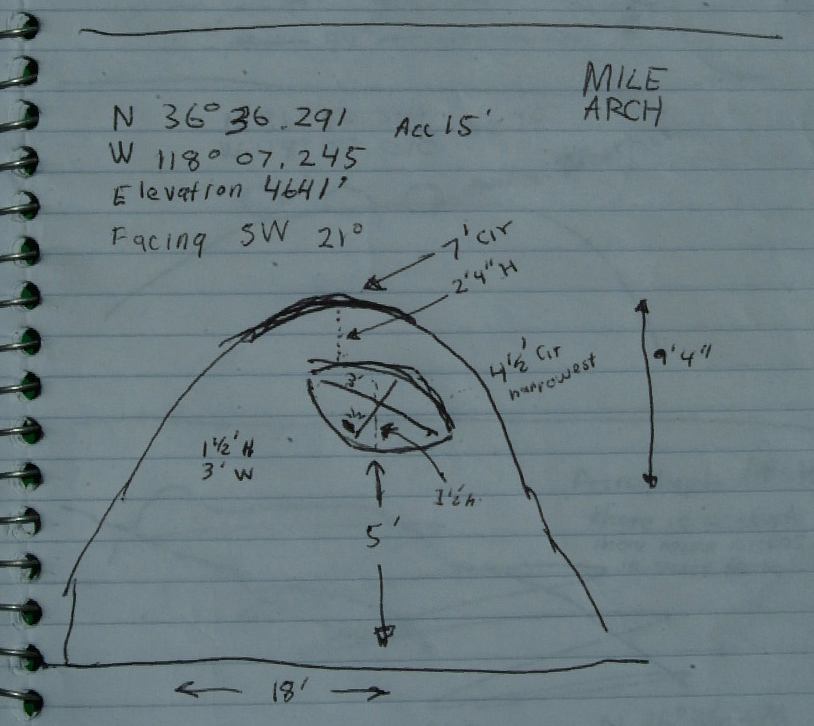 MILE
ARCH
N 36° 36.291 Acc 15'
W 118° 07.245
Elevation 4641'
Facing SW 21°
7' Cir
2'4" H
9'4"
4½' Cir
narrowest
3'
1½' H
3' W
1½'h.
5'
18'